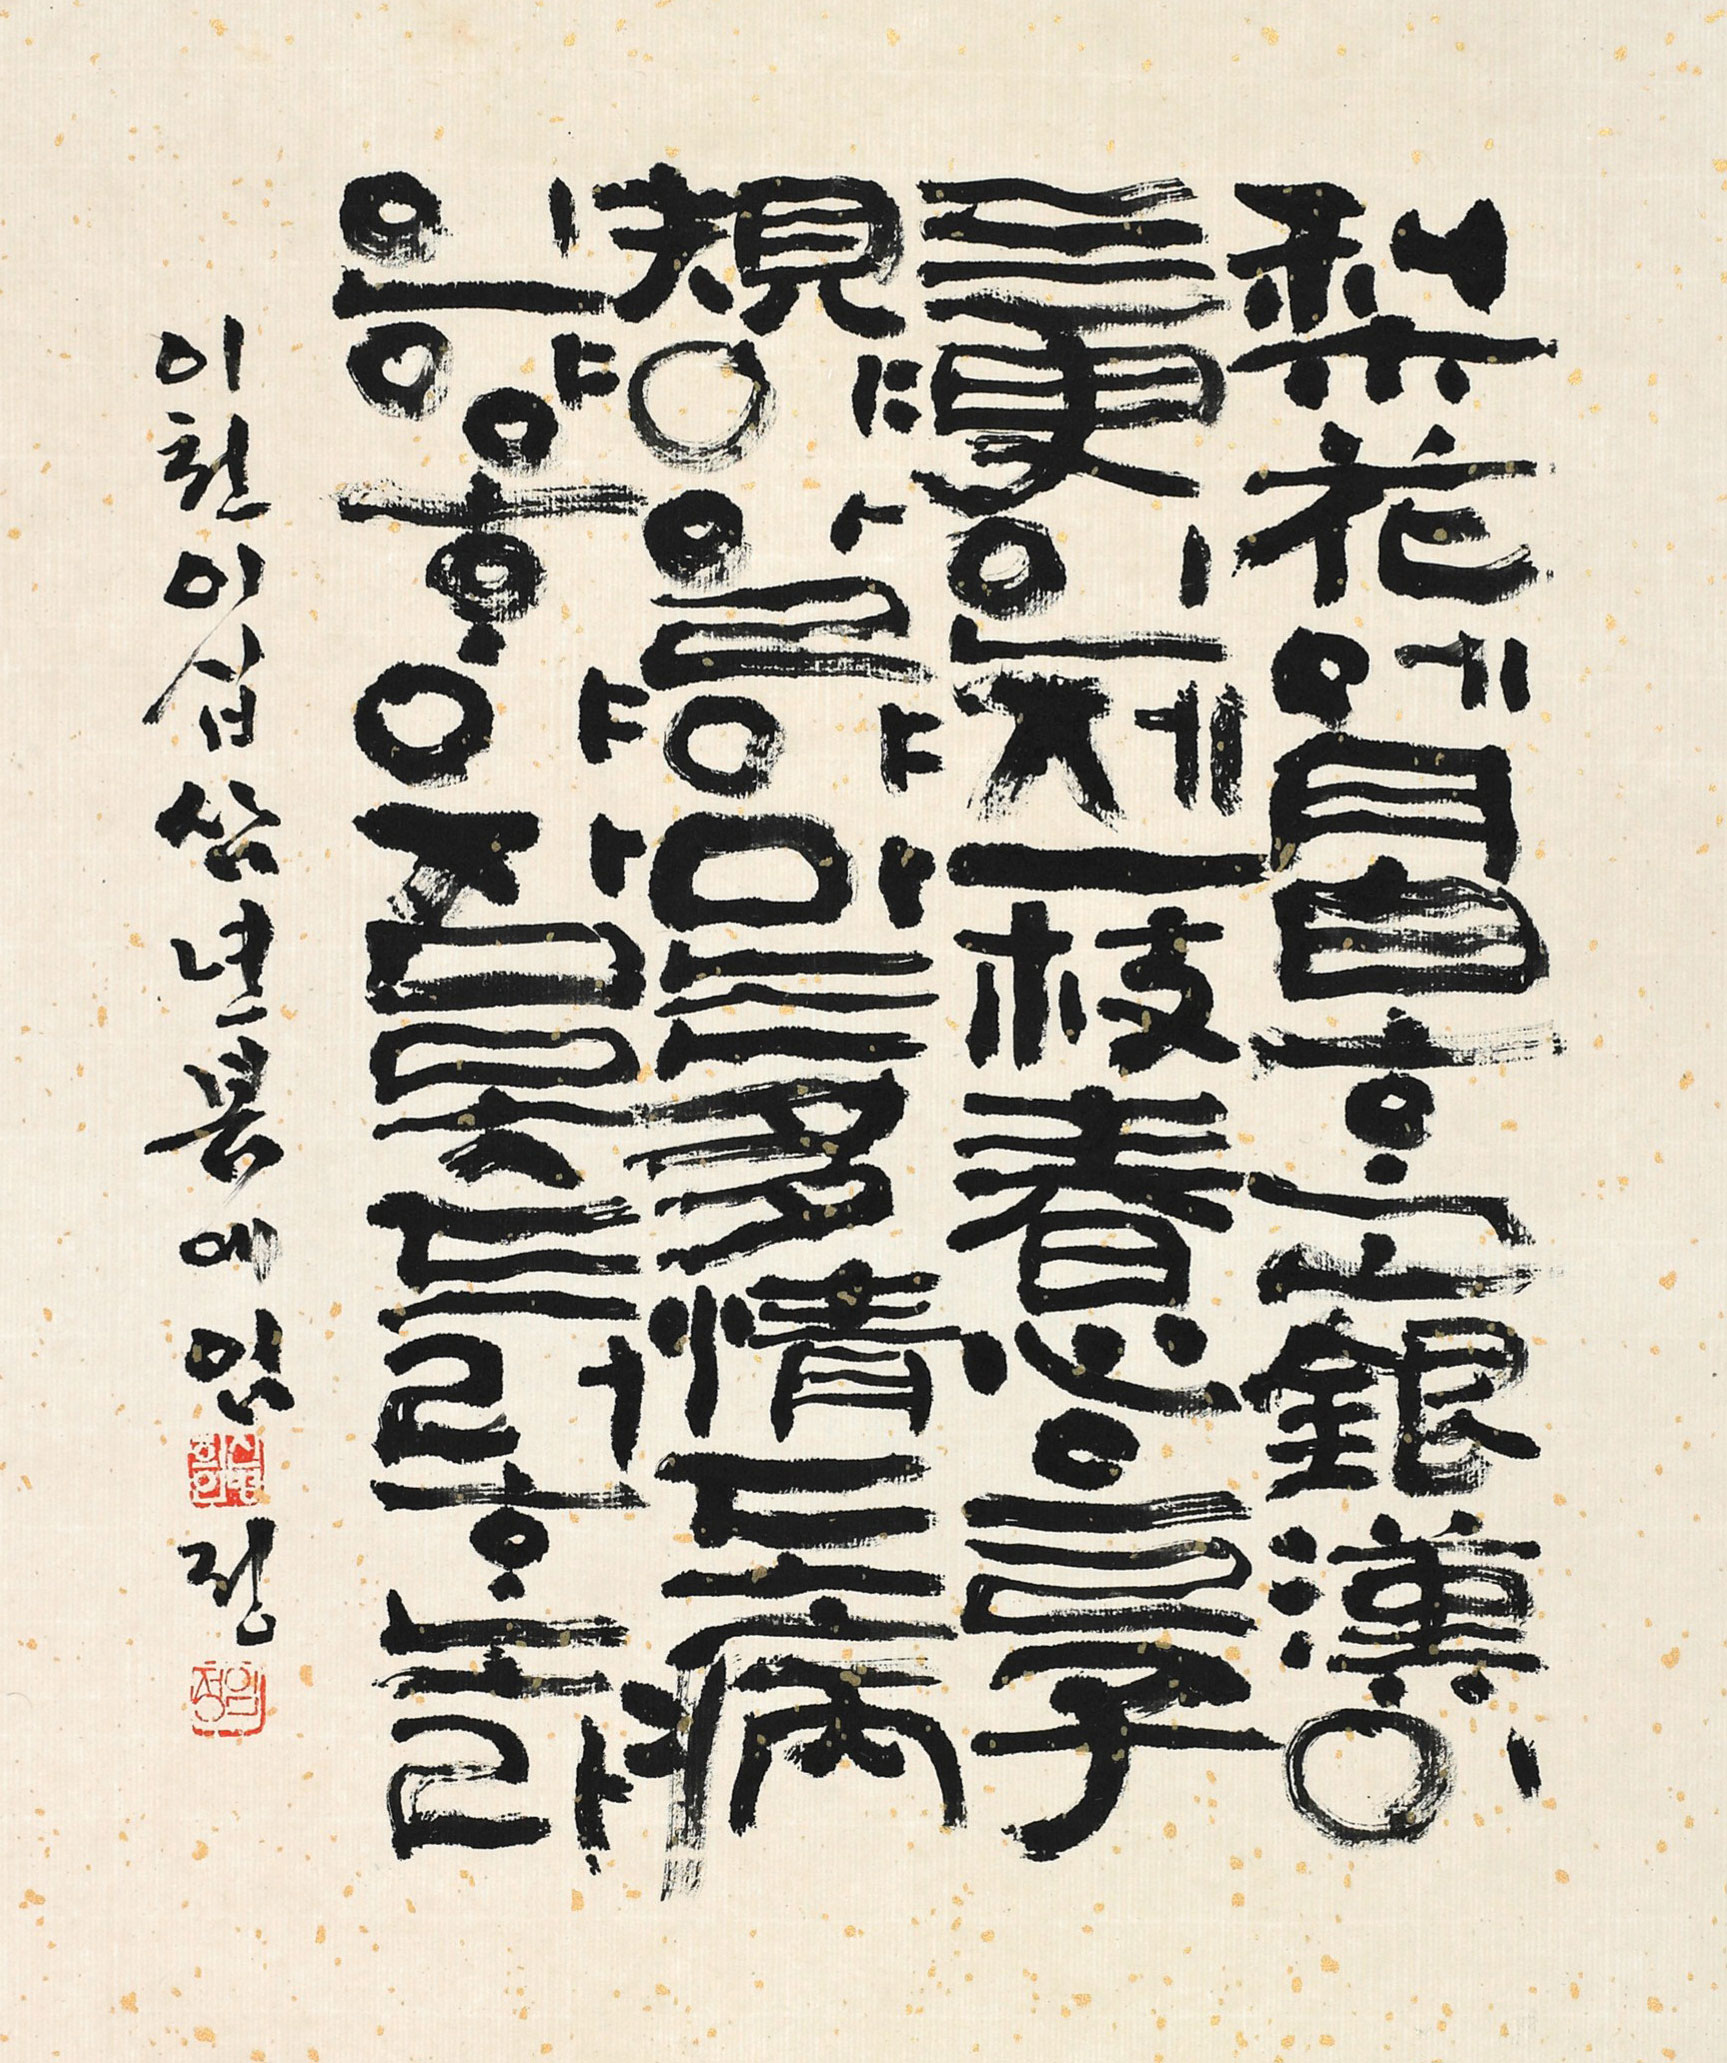 梨花에月白ᄒᆞ고銀漢이
三更인제一枝春心을子
規야알야마는多情도病
인양ᄒᆞ야잠못드러ᄒᆞ노라
이천이십삼년봄에임정
임정